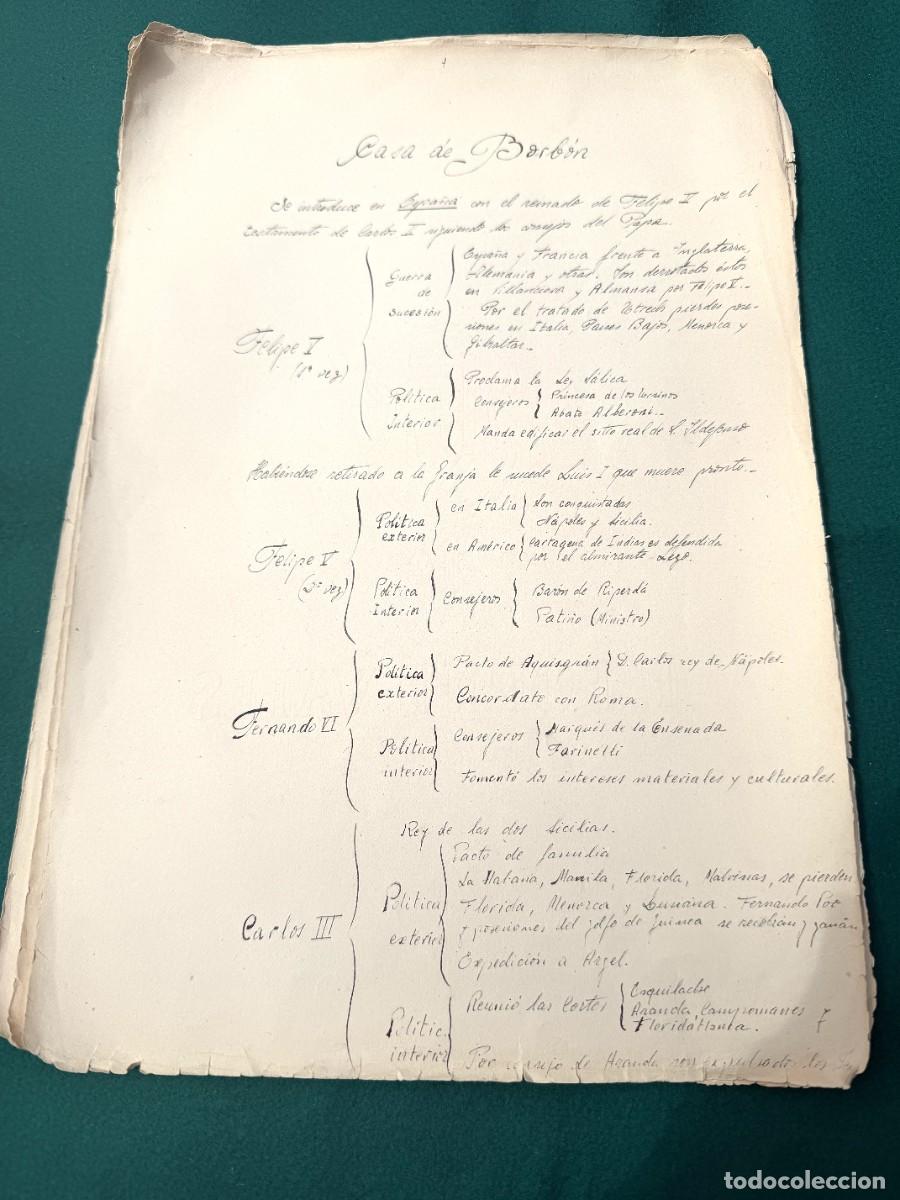 Casa de Borbón
Se introduce en España con el reinado de Felipe V por el
testamento de Carlos II siguiendo los consejos del Papa.
Felipe V
(1ª vez)
Guerra
de
sucesión
España y Francia frente a Inglaterra,
Alemania y otras. Son derrotados éstos
en Villaviciosa y Almansa por Felipe V.-
Por el tratado de Utrech pierdes pose-
siones en Italia, Paises Bajos, Menorca y
Gibraltar.-
Política
Interior
Proclama la Ley Sálica
Consejeros
Princesa de los Ursinos
Abate Alberoni.-
Manda edificar el sitio real de S. Ildefonso
Habiéndose retirado a la Granja le sucede Luis I que muere pronto.-
Felipe V
(2ª vez)
Política
exterior
en Italia
Son conquistadas
Nápoles y Sicilia.
en América
Cartagena de Indias es defendida
por el almirante Lezo.
Política
Interior
Consejeros
Barón de Riperdá
Patiño (Ministro)
Fernando VI
Política
exterior
Pacto de Aquisgrán
D. Carlos rey de Nápoles.
Concordato con Roma.
Política
interior
Consejeros
Marqués de la Ensenada
Farinelli
Fomentó los intereses materiales y culturales.
Carlos III
Rey de las dos Sicilias.
Política
exterior
Pacto de familia
La Habana, Manila, Florida, Malvinas, se pierden
Florida, Menorca y Luisiana. Fernando Poo
y posesiones del golfo de Guinea se recobrán y ganán
Expedición a Argel.
Politic
interior
Reunió las Cortes
Esquilache
Aranda, Campomanes y
Floridablanca.
Por consejo de Aranda son expulsado los
todocoleccion